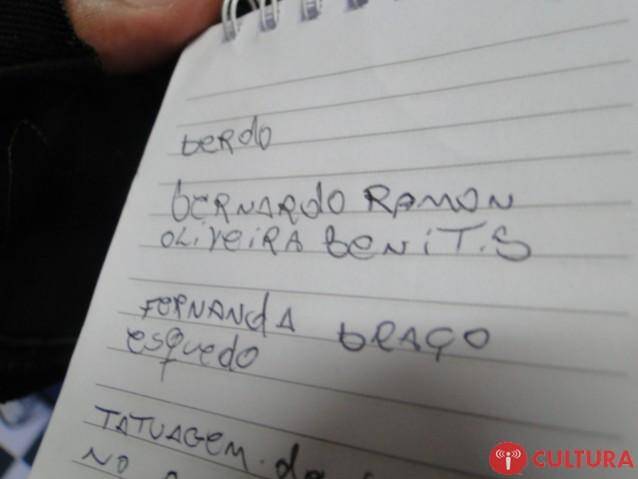 berdo
bernardo Ramon
oliveira beniT.s
Fernanda braço
esquedo
TATUAGEM. da
NO
CULTURA